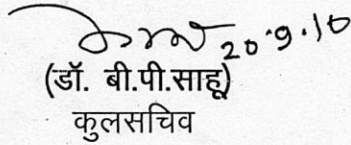 20.9.10
(डॉ. बी.पी.साहू)
कुलसचिव